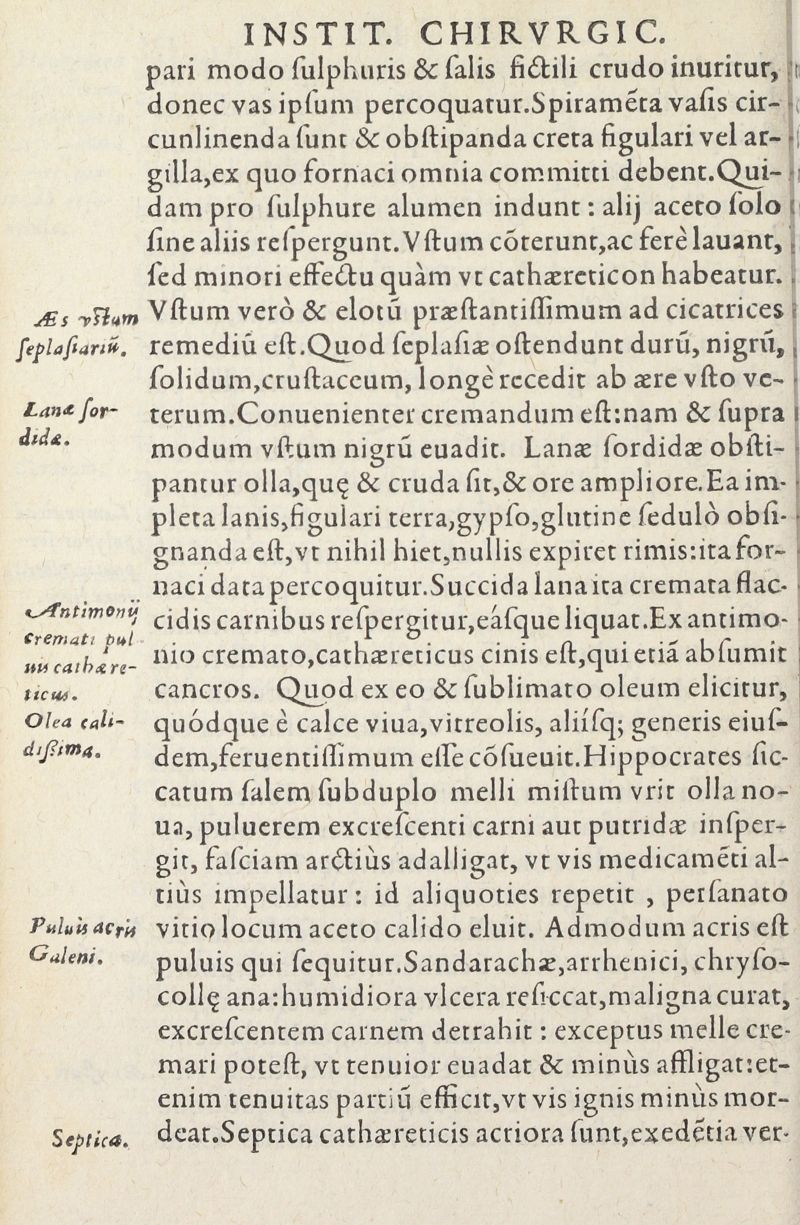 INSTIT. CHIRVRGIC.
pari modo ſulphuris & ſalis fictili crudo inuritur,
donec vas ipſum percoquatur.Spiramēta vaſis cir-
cunlinenda ſunt & obſtipanda creta figulari vel ar-
gilla,ex quo fornaci omnia committi debent.Qui-
dam pro ſulphure alumen indunt : alij aceto ſolo
ſine aliis reſpergunt.Vſtum cōterunt,ac ferè lauant,
ſed minori effectu quàm vt cathæreticon habeatur.
Æs vſtum
ſeplaſiariū.
Vſtum verò & elotū præſtantiſſimum ad cicatrices
remediū eſt.Quod ſeplaſiæ oſtendunt durū, nigrū,
ſolidum,cruſtaceum, longè recedit ab ære vſto ve-
Lanæ ſor-
didæ.
terum.Conuenienter cremandum eſt:nam & ſupra
modum vſtum nigrū euadit. Lanæ ſordidæ obſti-
pantur olla,quę & cruda ſit,& ore ampliore.Ea im-
pleta lanis,figulari terra,gypſo,glutine ſedulò obſi-
gnanda eſt,vt nihil hiet,nullis expiret rimis:ita for-
naci data percoquitur.Succida lana ita cremata flac-
Antimonij
cremati pul
uis cathære-
ticus.
Olea cali-
diſſima.
cidis carnibus reſpergitur,eáſque liquat.Ex antimo-
nio cremato,cathæreticus cinis eſt,qui etiā abſumit
cancros. Quod ex eo & ſublimato oleum elicitur,
quódque è calce viua,vitreolis, aliíſq; generis eiuſ-
dem,feruentiſſimum eſſe cōſueuit.Hippocrates ſic-
catum ſalem ſubduplo melli miſtum vrit olla no-
ua, puluerem excreſcenti carni aut putridæ inſper-
git, faſciam arctiùs adalligat, vt vis medicamēti al-
tiùs impellatur : id aliquoties repetit , perſanato
Puluis acris
Galeni.
vitio locum aceto calido eluit. Admodum acris eſt
puluis qui ſequitur.Sandarachæ,arrhenici, chryſo-
collę ana:humidiora vlcera reſiccat,maligna curat,
excreſcentem carnem detrahit : exceptus melle cre-
mari poteſt, vt tenuior euadat & minùs affligat:et-
enim tenuitas partiū efficit,vt vis ignis minùs mor-
Septica.
deat.Septica cathæreticis acriora ſunt,exedētia ver-